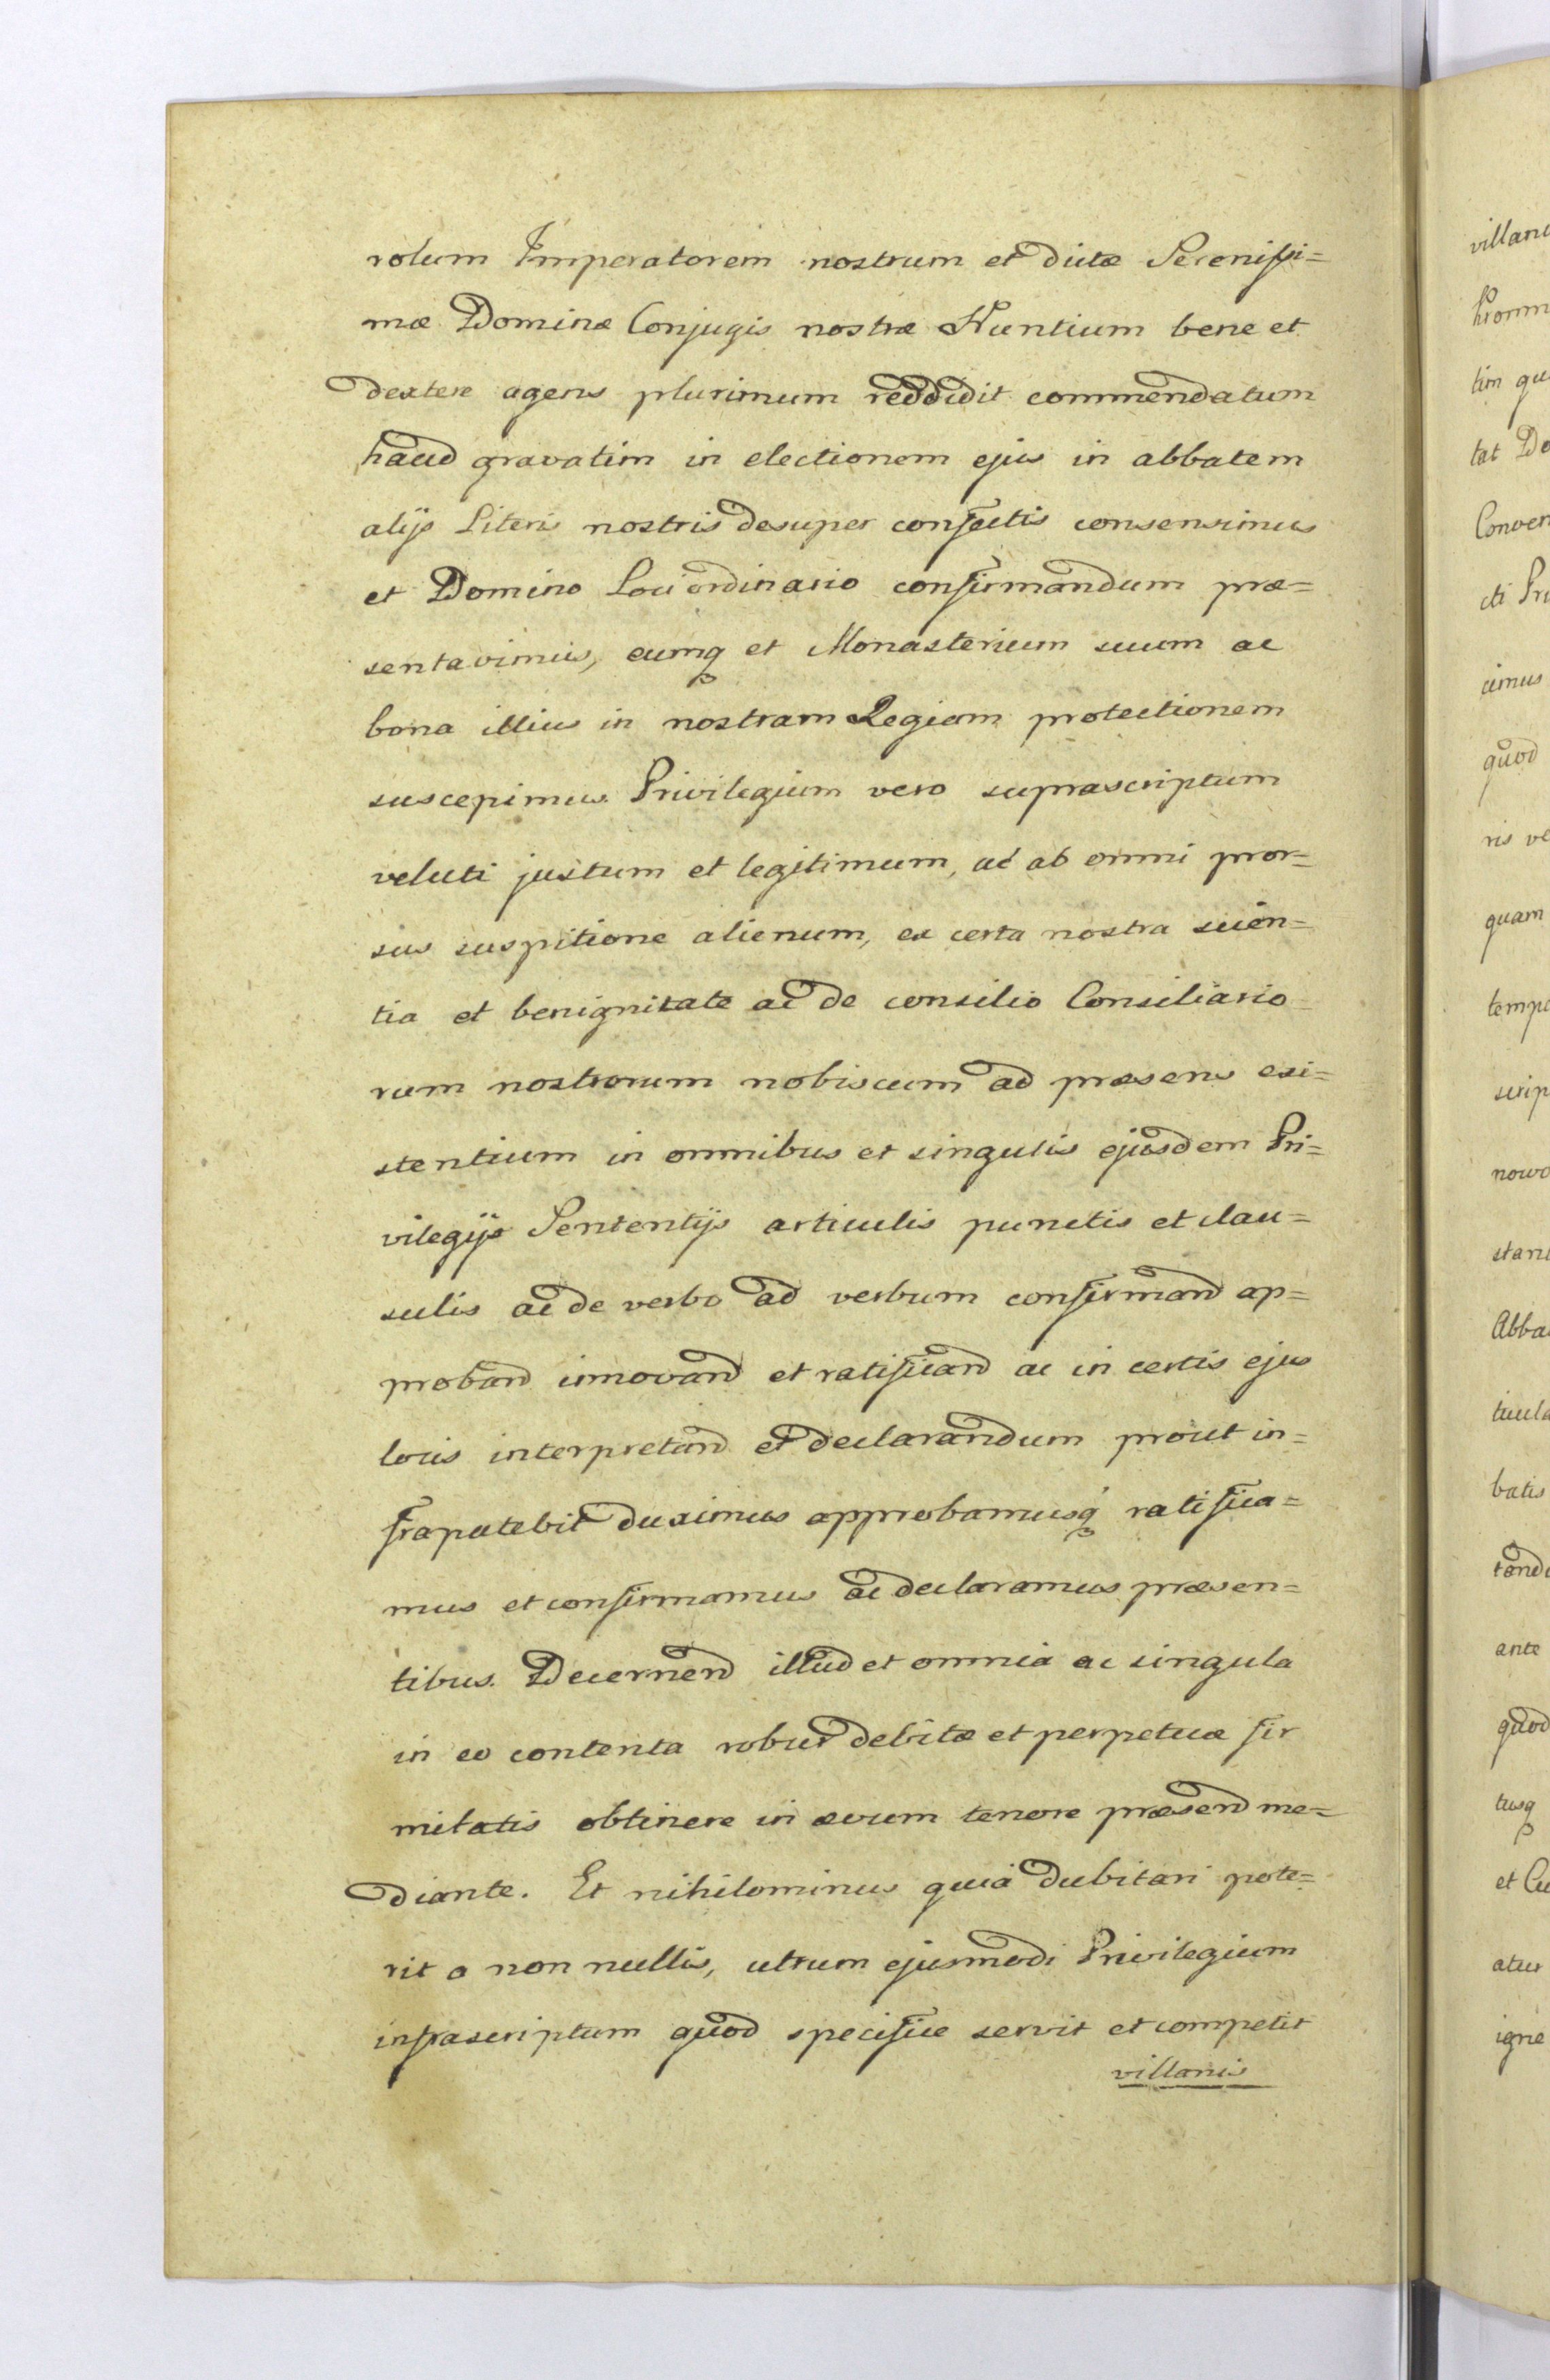 rolum Imperatorem nostrum et dictæ Serenissi=
mæ Dominæ Conjugis nostræ Nuntium bene et
dextere agens plurimum reddidit commendatum
haud gravatim in electionem ejus in abbatem
alijs Literis nostris desuper confectis consensimus
et Domino Loci ordinario confirmandum præ=
sentavimus, eumq et Monasterium suum ac
bona illius in nostram Regiam protectionem
suscepimus. Privilegium vero suprascriptum
veluti justum et legitimum, ac ab omni pror=
sus suspitione alienum, ex certa nostra scien=
tia et benignitate ac de consilio Consiliario=
rum nostrorum nobiscum ad præsens exi=
stentium in omnibus et singulis ejusdem Pri=
vilegijs Sententijs articulis punctis et clau=
sulis ac de verbo ad verbum confirmand ap=
proband innovand et ratificand ac in certis ejus
locis interpretand et declarandum prout in=
frapatebit duximus approbamusq ratifica=
mus et confirmamus ac declaramus præsen=
tibus. Decernend illud et omnia ac singula
in eo contenta robur debitæ et perpetuæ fir
mitatis obtinere in ævum tenore præsend me=
diante. Et nihilominus quia dubitari pote=
rit a non nullis, utrum ejusmodi Privilegium
infrascriptum quod specifice servit et competit
villanis
villan
tim qu
tat Do
Conven
cti Pri
cimus
quod
ris ve
quam
tempo
scrip
novo
stan
Abba
ticula
batis
tand
ante
quod
tusq
et Cu
atur
igne